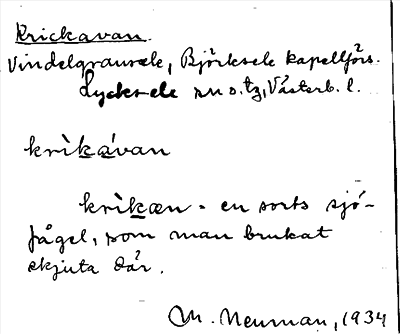 Krickavan.
Vindelgransele, Björksele kapellförs.
Lycksele sn o. tg, Västerb. l.
krìkávan
krìkæn - en sorts sjö-
fågel, som man brukat
skjuta där.
M. Neuman, 1934